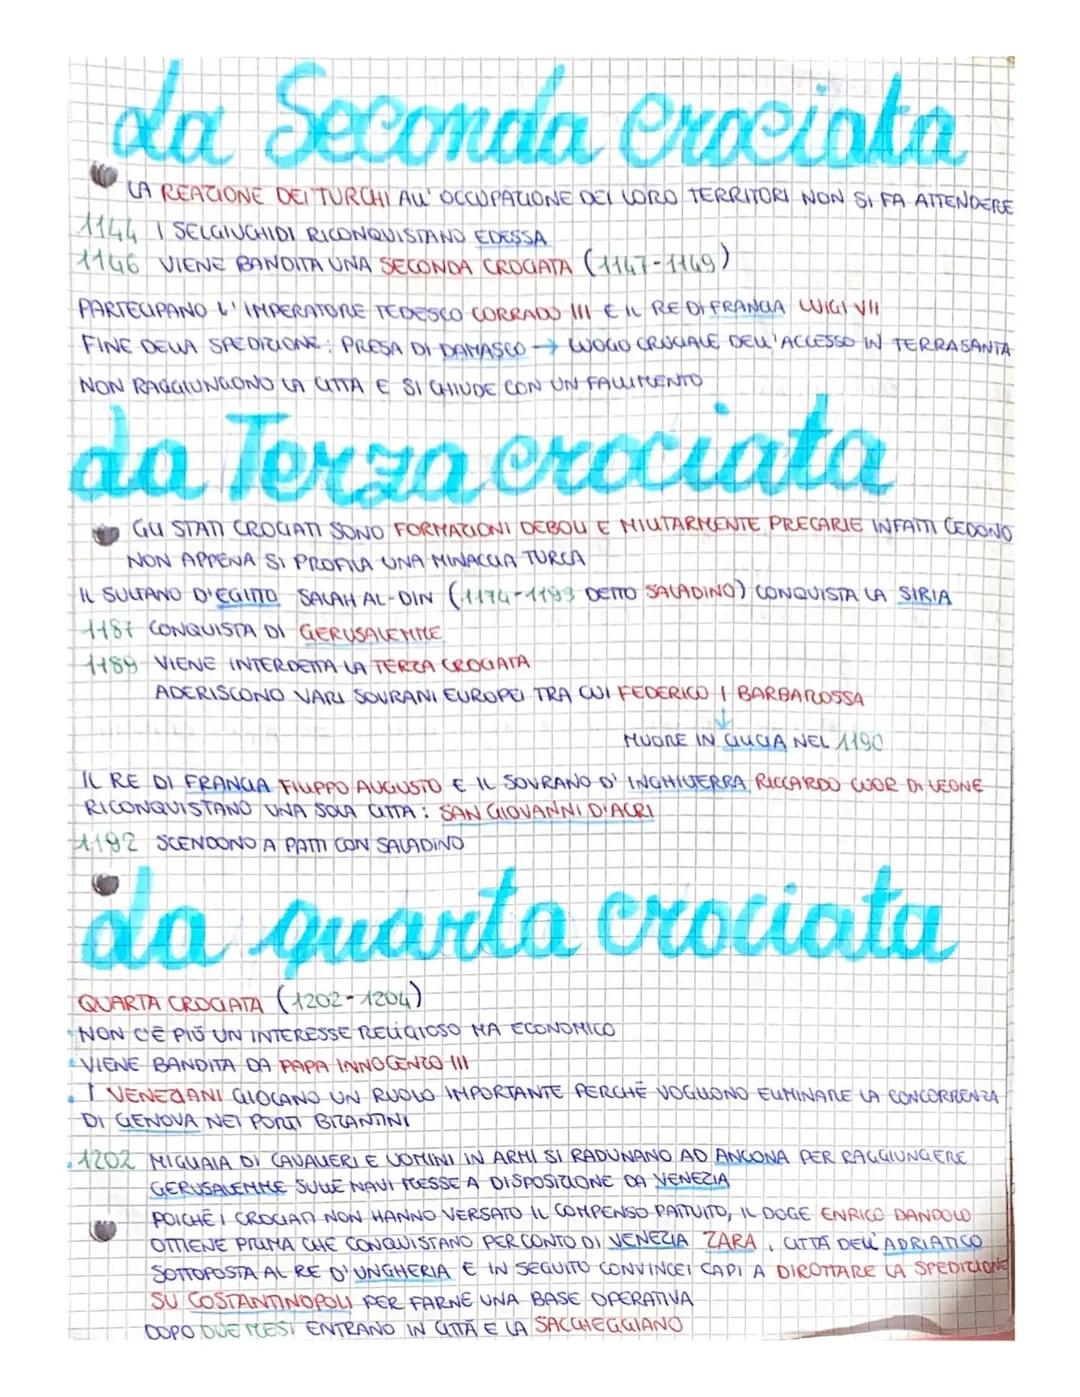 la Seconda crociata
LA REAZIONE DEI TURCHI ALL'OCCUPAZIONE DEI LORO TERRITORI NON SI FA ATTENDERE
1144 I SELGIUCHIDI RICONQUISTANO EDESSA
1146 VIENE BANDITA UNA SECONDA CROCIATA (1147-1149)
PARTECIPANO L'IMPERATORE TEDESCO CORRADO III E IL RE DI FRANCIA LUIGI VII
FINE DELLA SPEDIZIONE: PRESA DI DAMASCO → LUOGO CRUCIALE DELL'ACCESSO IN TERRASANTA
NON RAGGIUNGONO LA CITTÀ E SI CHIUDE CON UN FALLIMENTO
la Terza crociata
GLI STATI CROCIATI SONO FORMAZIONI DEBOLI E MILITARMENTE PRECARIE INFATTI CEDONO
NON APPENA SI PROFILA UNA MINACCIA TURCA
IL SULTANO D'EGITTO SALAH AL-DIN (1174-1193 DETTO SALADINO) CONQUISTA LA SIRIA
1187 CONQUISTA DI GERUSALEMME
1189 VIENE INTERDETTA LA TERZA CROCIATA
ADERISCONO VARI SOVRANI EUROPEI TRA CUI FEDERICO I BARBAROSSA
↓
MUORE IN CILICIA NEL 1190
IL RE DI FRANCIA FILIPPO AUGUSTO E IL SOVRANO D'INGHILTERRA RICCARDO CUOR DI LEONE
RICONQUISTANO UNA SOLA CITTÀ: SAN GIOVANNI D'ACRI
1192 SCENDONO A PATTI CON SALADINO
la quarta crociata
QUARTA CROCIATA (1202-1204)
NON C'È PIÙ UN INTERESSE RELIGIOSO MA ECONOMICO
VIENE BANDITA DA PAPA INNOCENZO III
I VENEZIANI GIOCANO UN RUOLO IMPORTANTE PERCHÉ VOGLIONO ELIMINARE LA CONCORRENZA
DI GENOVA NEI PORTI BIZANTINI
1202 MIGLIAIA DI CAVALIERI E UOMINI IN ARMI SI RADUNANO AD ANCONA PER RAGGIUNGERE
GERUSALEMME SULLE NAVI MESSE A DISPOSIZIONE DA VENEZIA
POICHÉ I CROCIATI NON HANNO VERSATO IL COMPENSO PATTUITO, IL DOGE ENRICO DANDOLO
OTTIENE PRIMA CHE CONQUISTANO PER CONTO DI VENEZIA ZARA, CITTÀ DELL'ADRIATICO
SOTTOPOSTA AL RE D'UNGHERIA E IN SEGUITO CONVINCE I CAPI A DIROTTARE LA SPEDIZIONE
SU COSTANTINOPOLI PER FARNE UNA BASE OPERATIVA
DOPO DUE MESI ENTRANO IN CITTÀ E LA SACCHEGGIANO